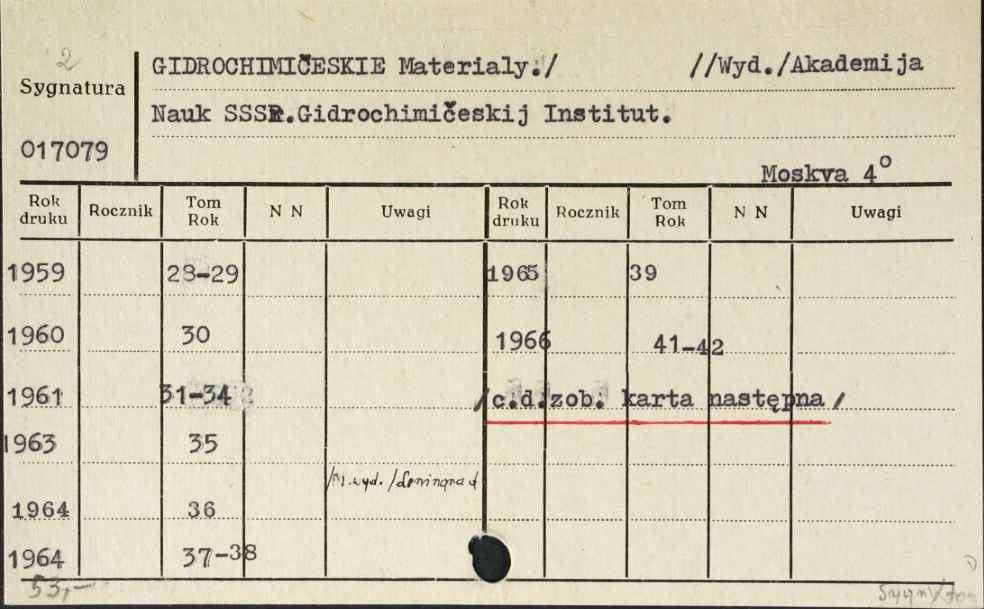 2
Sygnatura
017079
GIDROCHIMIČESKIE Materialy./ //Wyd./Akademija
Nauk SSSR.Gidrochimičeskij Institut.
Moskva 4°
Rok druku Rocznik Tom Rok N N Uwagi Rok druku Rocznik Tom Rok N N Uwagi
1959 28-29 1965 39
1960 30 1966 41-42
1961 31-34 /c.d.zob. karta następna/
1963 35
/M.wyd./Leningrad
1964 36
1964 37-38
53,-